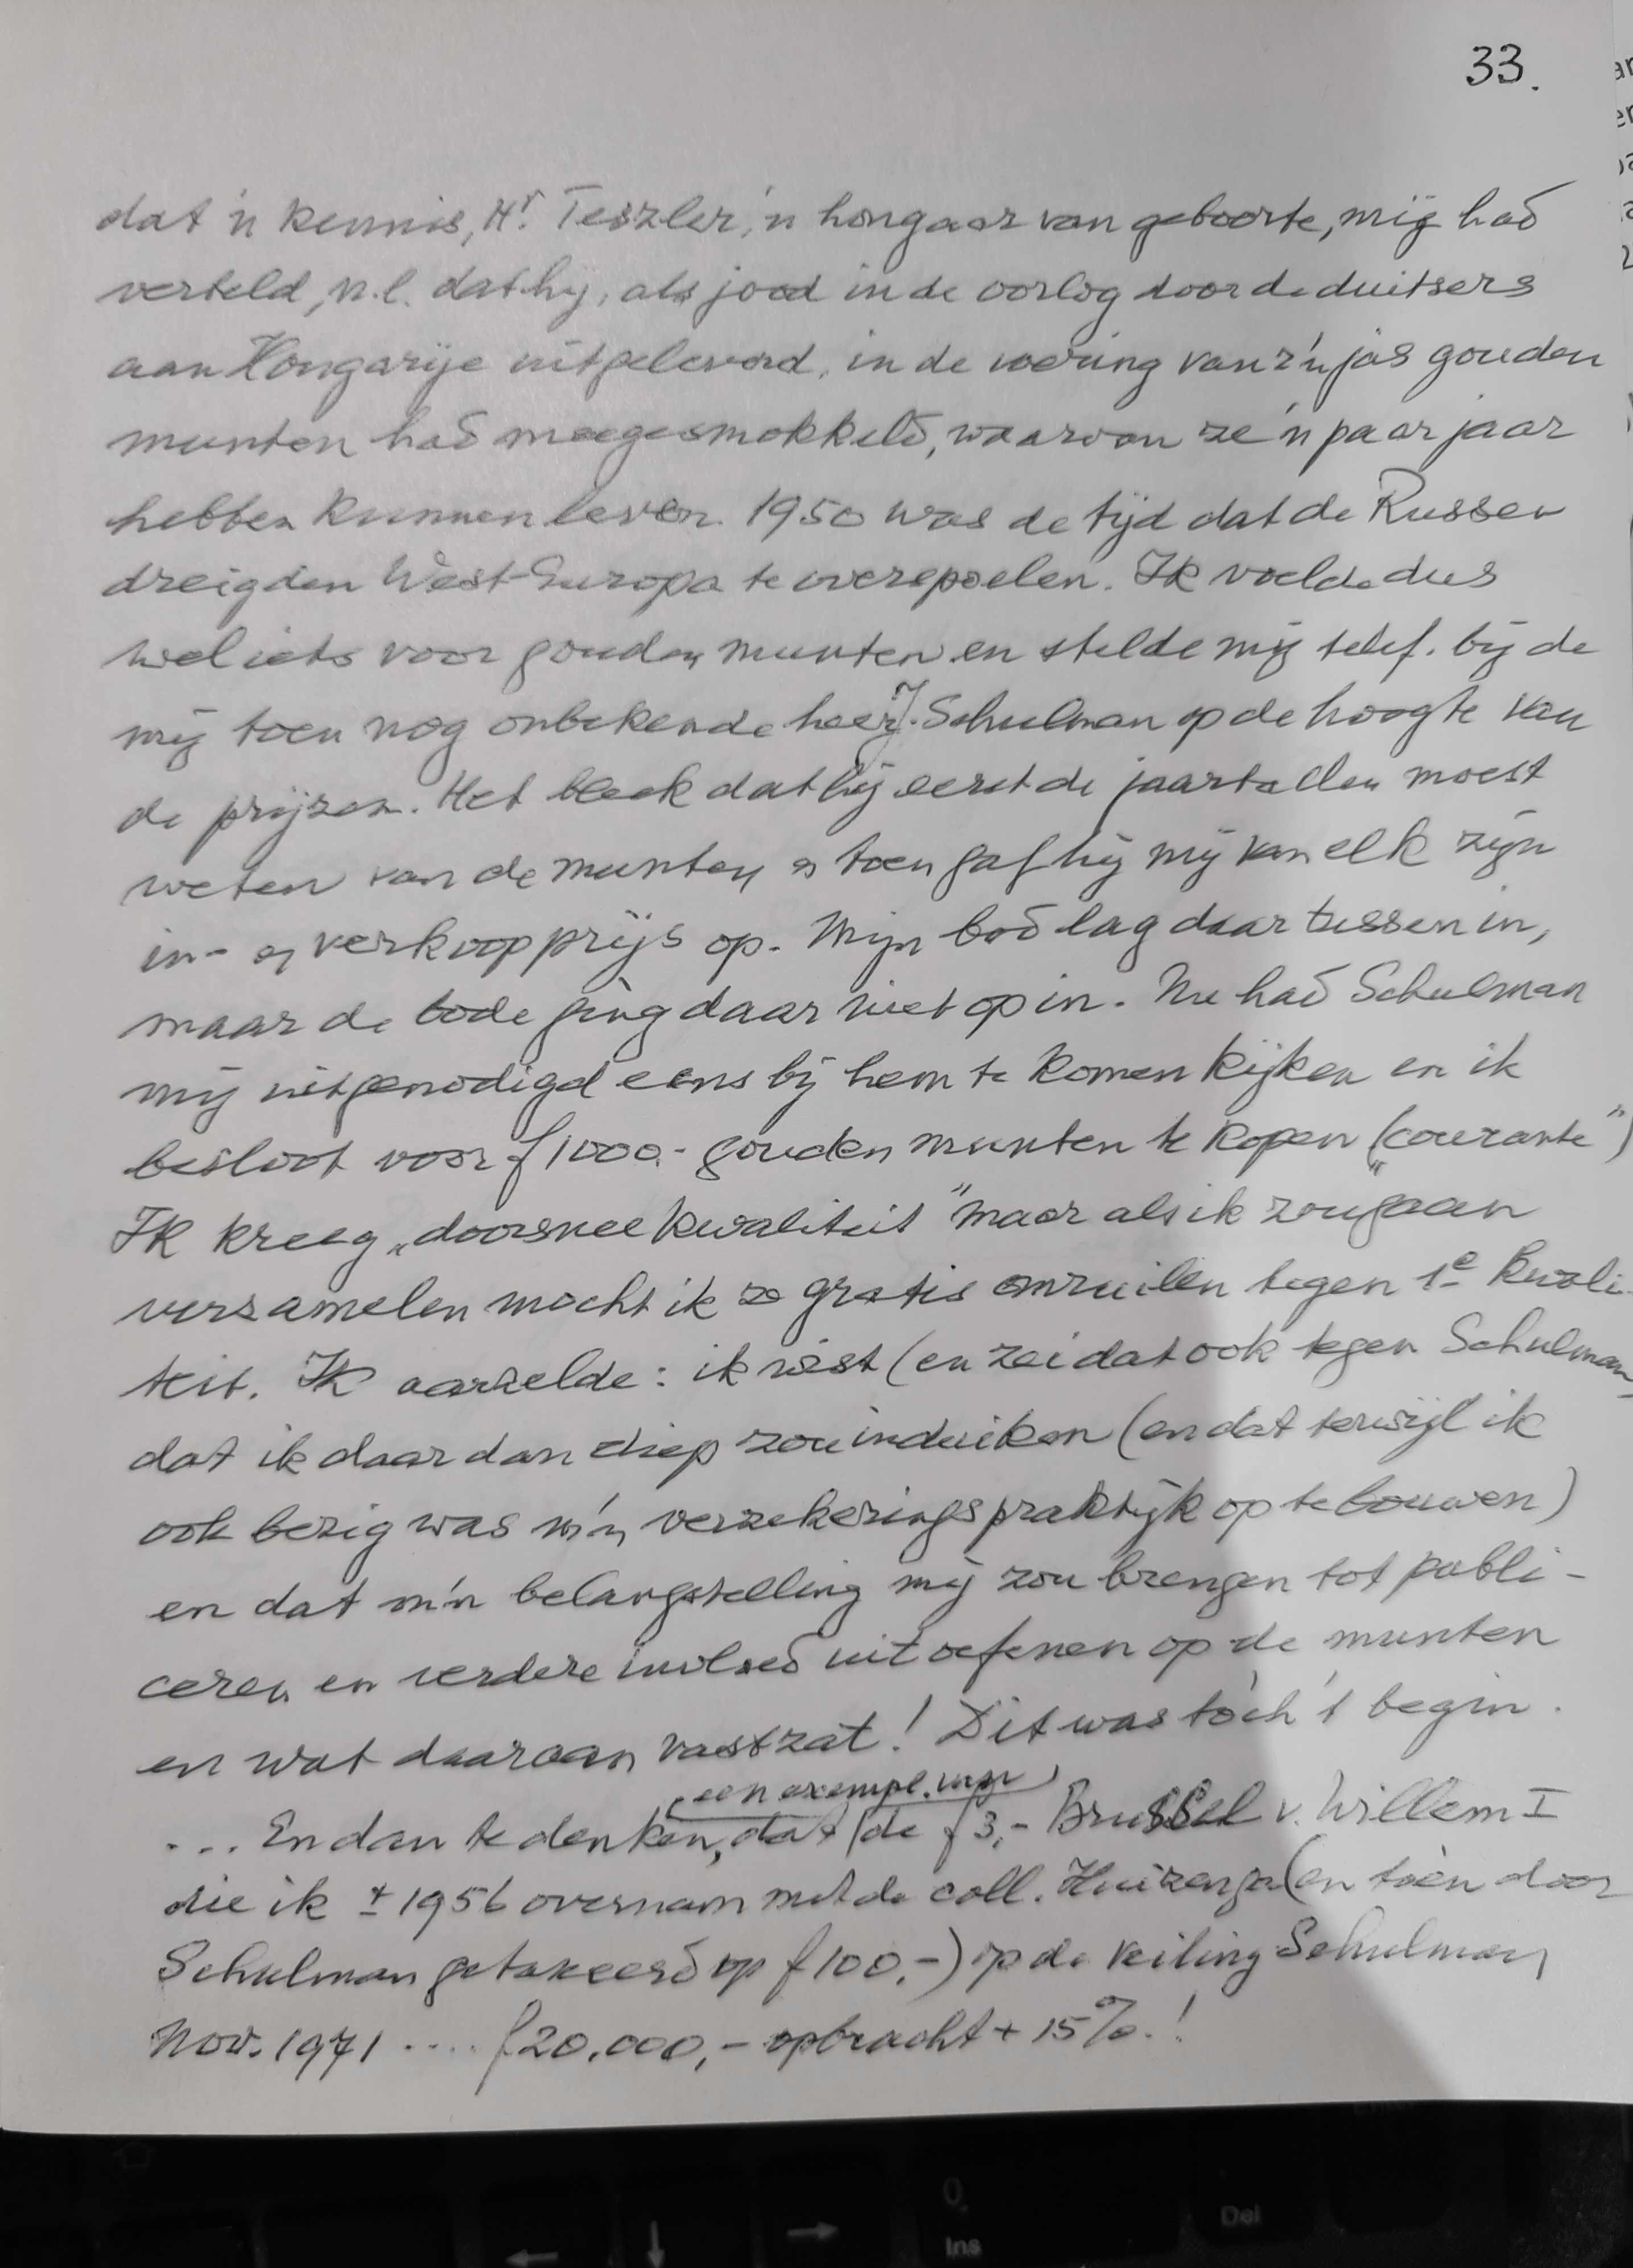 33.
dat 'n kennis, Hr. Teszler, 'n hongaar van geboorte, mij had
verteld, n.l. dat hij, als jood in de oorlog door de duitsers
aan Hongarije uitgeleverd, in de voering van z'n jas gouden
munten had meegesmokkeld, waarvan ze 'n paar jaar
hebben kunnen leven. 1950 was de tijd dat de Russen
dreigden West-Europa te overspoelen. Ik voelde dus
wel iets voor gouden munten en stelde mij telef. bij de
mij toen nog onbekende heer J. Schulman op de hoogte van
de prijzen. Het bleek dat hij eerst de jaartallen moest
weten van de munten en toen gaf hij mij van elk zijn
in- en verkoopprijs op. Mijn bod lag daar tussen in,
maar de bode ging daar niet op in. Nu had Schulman
mij uitgenodigd eens bij hem te komen kijken en ik
besloot voor f 1000.- gouden munten te kopen („courante")
Ik kreeg „doorsnee kwaliteit" maar als ik zou gaan
verzamelen mocht ik ze gratis omruilen tegen 1e kwali-
teit. Ik aarzelde: ik wist (en zei dat ook tegen Schulman)
dat ik daar dan diep zou induiken (en dat terwijl ik
ook bezig was m'n verzekeringspraktijk op te bouwen)
en dat m'n belangstelling mij zou brengen tot publi-
ceren en verdere invloed uitoefenen op de munten
en wat daaraan vastzat! Dit was tòch 't begin.
een exempl. van
... En dan te denken, dat de f 3,- Brussel v. Willem I
die ik ± 1956 overnam met de coll. Huizenga (en toèn door
Schulman getaxeerd op f 100,-) op de veiling Schulman
Nov. 1971 .... f 20.000,- opbracht + 15%.!
0
Ins
Del